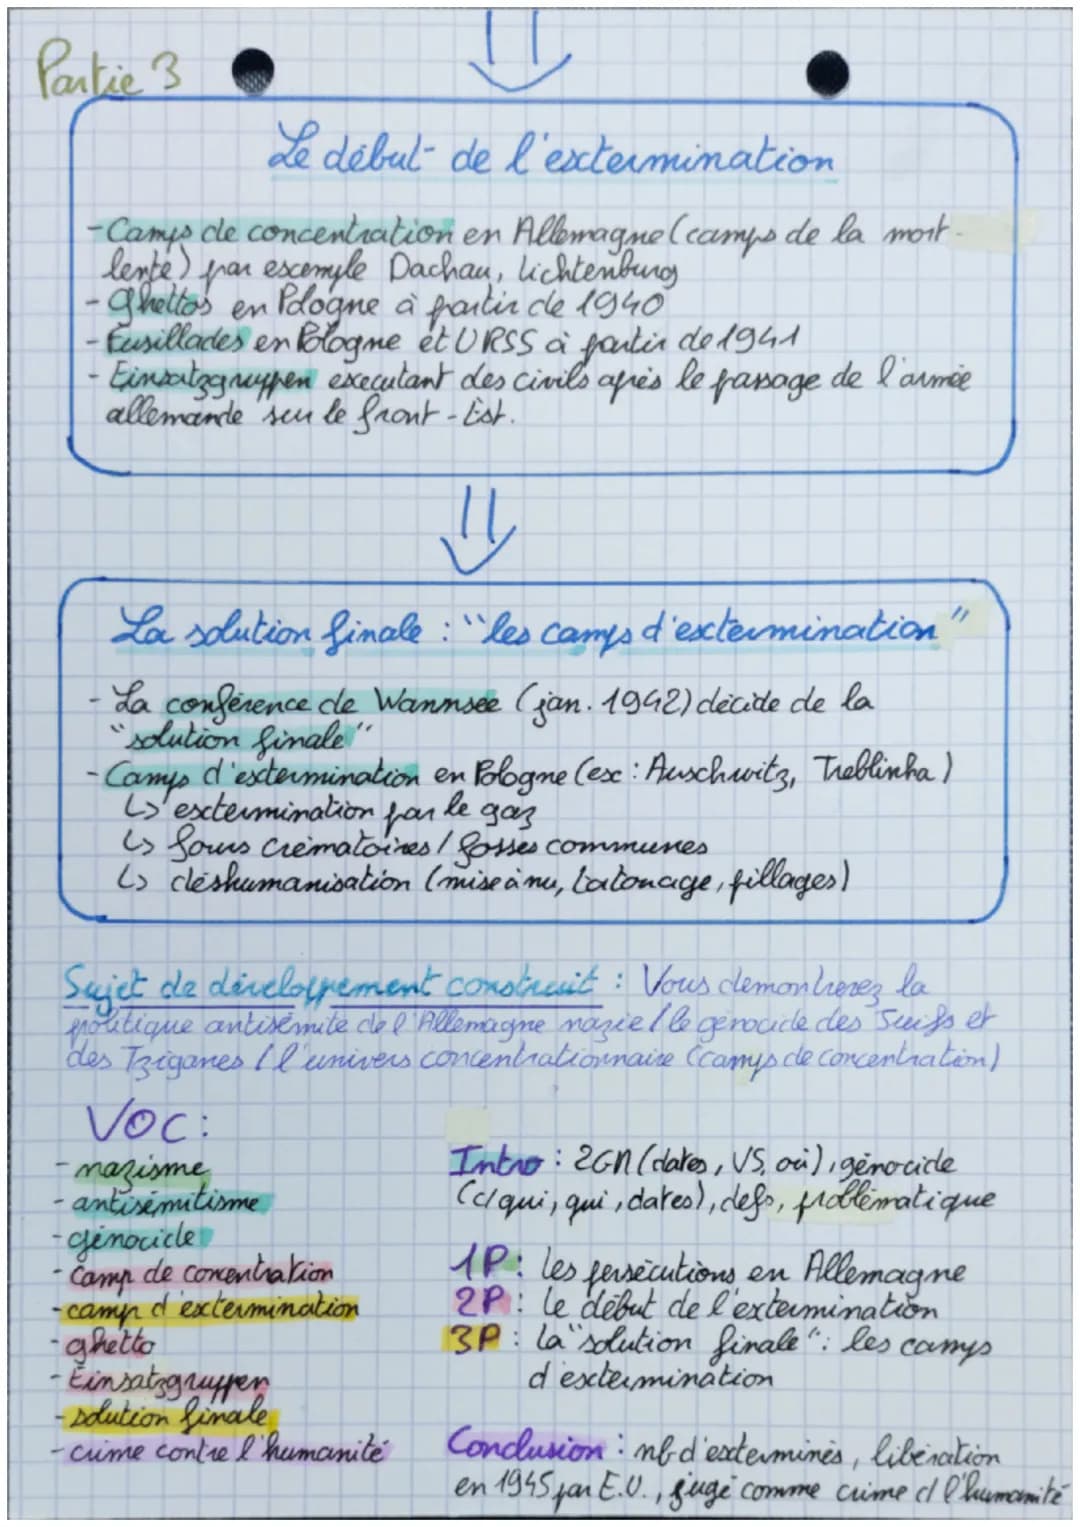 Partie 3
Le début de l'extermination
- Camps de concentration en Allemagne (camps de la mort
lente) par exemple Dachau, Lichtenburg
- Ghettos en Pologne à partir de 1940
- Fusillades en Pologne et URSS à partir de 1941
- Einsatzgruppen executant des civils après le passage de l'armée
allemande sur le front-Est.
La solution finale : "les camps d'extermination"
- La conférence de Wannsee (jan. 1942) décide de la
"solution finale"
- Camps d'extermination en Pologne (ex : Auschwitz, Treblinka)
↳ extermination par le gaz
↳ fours crématoires / fosses communes
↳ déshumanisation (mise à nu, tatouage, pillages)
Sujet de développement construit : Vous demontrerez la
politique antisémite de l'Allemagne nazie / le génocide des Juifs et
des Tziganes / l'univers concentrationnaire (camps de concentration)
VOC :
- nazisme
- antisémitisme
- génocide
- camp de concentration
- camp d'extermination
- ghetto
- Einsatzgruppen
- solution finale
- crime contre l'humanité
Intro : 2GM (dates, VS, où), génocide
(c/qui, qui, dates), defs, problématique
1P : les persécutions en Allemagne
2P : le début de l'extermination
3P : la "solution finale" : les camps
d'extermination
Conclusion : nb d'exterminés, libération
en 1945 par E.U., jugé comme crime c/ l'humanité